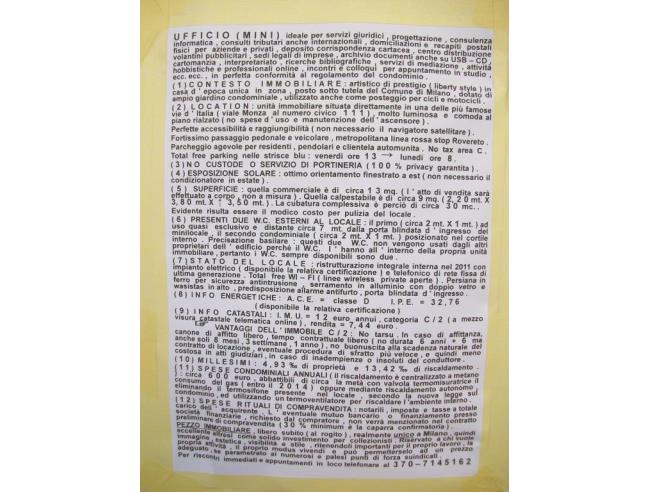 UFFICIO (MINI) ideale per servizi giuridici , progettazione , consulenza
informatica , consulti tributari anche internazionali , domiciliazioni e recapiti postali
fisici per aziende e privati , deposito corrispondenza cartacea , centro distribuzione
volantini pubblicitari , sedi legali di imprese , archivio documenti anche su USB – CD ,
cartomanzia , interpretariato , ricerche bibliografiche , servizi di mediazione , attività
hobbistiche e professionali online , incontri e colloqui per appuntamento in studio ,
ecc. ecc. , in perfetta conformità al regolamento del condominio .
(1) CONTESTO IMMOBILIARE : artistico di prestigio ( liberty style ) in
casa d ' epoca unica in zona , posto sotto tutela del Comune di Milano , dotato di
ampio giardino condominiale , utilizzato anche come posteggio per cicli e motocicli .
(2) LOCATION : unità immobiliare situata direttamente in una delle più famose
vie d ' Italia ( viale Monza al numero civico 111 ) , molto luminosa e comoda al
piano rialzato ( no spese d ' uso e manutenzione dell ' ascensore ) .
Perfette accessibilità e raggiungibilità ( non necessario il navigatore satellitare ) .
Fortissimo passaggio pedonale e veicolare , metropolitana linea rossa stop Rovereto .
Parcheggio agevole per residenti , pendolari e clientela automunita . No tax area C .
Total free parking nelle strisce blu : venerdì ore 13 → lunedì ore 8 .
(3) NO CUSTODE O SERVIZIO DI PORTINERIA (100 % privacy garantita ) .
(4) ESPOSIZIONE SOLARE : ottimo orientamento finestrato a est ( non necessario il
condizionatore in estate ) .
(5) SUPERFICIE : quella commerciale è di circa 13 mq. ( l ' atto di vendita sarà
effettuato a corpo , non a misura ) . Quella calpestabile è di circa 9 mq. ( 2,20 mt. X
3,80 mt. X ↑ 3,50 mt. ) . La cubatura complessiva è perciò di circa 30 mc. .
Evidente risulta essere il modico costo per pulizia del locale .
(6) PRESENTI DUE W.C. ESTERNI AL LOCALE : il primo ( circa 2 mt. X 1 mt. ) ad
uso quasi esclusivo e distante circa 7 mt. dalla porta blindata d ' ingresso del
minilocale , il secondo condominiale ( circa 2 mt. X 1 mt. ) posizionato nel cortile
interno . Precisazione basilare : questi due W.C. non vengono usati dagli altri
proprietari dell ' edificio perchè il W.C. l ' hanno all ' interno della propria unità
immobiliare , pertanto i W.C. sempre disponibili sono due .
(7) STATO DEL LOCALE : ristrutturazione integrale interna nel 2011 con
impianto elettrico ( disponibile la relativa certificazione ) e telefonico di rete fissa di
ultima generazione . Total free WI – FI ( linee wireless private aperte ) . Persiana in
ferro per sicurezza antintrusione , serramento in alluminio con doppio vetro e
wasistas in alto , predisposizione allarme antifurto , porta blindata d ' ingresso .
(8) INFO ENERGETICHE : A.C.E. = classe D I.P.E. = 32,76
( disponibile la relativa certificazione )
(9) INFO CATASTALI : I.M.U. = 12 euro annui , categoria C/2 ( a mezzo
visura catastale telematica online ) , rendita = 7,44 euro .
VANTAGGI DELL ' IMMOBILE C/2 : No tarsu . In caso di affittanza,
canone di affitto libero , tempo contrattuale libero ( no durata 6 anni + 6 ma
anche soli 8 mesi , 3 settimane , 1 anno ) , no buonuscita alla scadenza naturale del
contratto di locazione , eventuale procedura di sfratto più veloce , e quindi meno
costosa in atti giudiziari , in caso di inadempienze o insoluti del conduttore .
(10) MILLESIMI : 4,93 ‰ di proprietà e 13,42 ‰ di riscaldamento .
(11) SPESE CONDOMINIALI ANNUALI ( il riscaldamento è centralizzato a metano )
: circa 600 euro , abbattibili di circa la metà con valvola termomisuratrice il
consumo del gas ( entro il 2014 ) oppure mediante riscaldamento autonomo
eliminando il termosifone presente nel locale , secondo la nuova legge sul
condominio , ed utilizzando un termoventilatore per riscaldare l'ambiente interno .
(12) SPESE RITUALI DI COMPRAVENDITA : notarili , imposte e tasse a totale
carico dell ' acquirente . L ' eventuale mutuo bancario o finanziamento presso
società finanziarie , richiesto dal compratore , non verrà menzionato nel contratto
preliminare di compravendita ( 30 % minimum è la caparra confirmatoria ) .
PEZZO IMMOBILIARE , libero subito ( al rogito ) , realmente unico a Milano , quindi
eccellente altresì come solido investimento per collezionisti . Riservato a chi vuole
immagine , estetica , visibilità e stile , ritenendoli importanti per il proprio lavoro , la
propria attività , il proprio modus vivendi e può permetterselo ad un prezzo
adeguato , se parametrato ai numerosi e palesi punti di forza suindicati .
Per riscontri immediati e appuntamenti in loco telefonare al 370–7145162